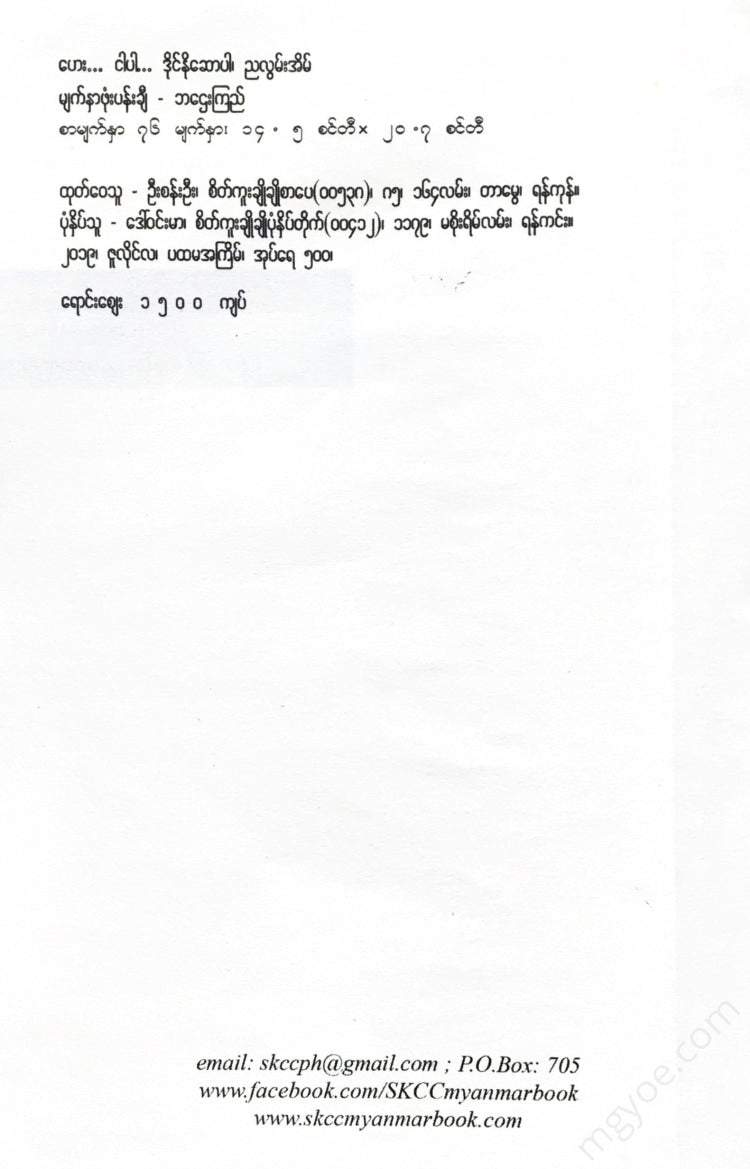 ဟေး... ငါပါ... ဒိုင်နိုဆောပါ၊ ညလွမ်းအိမ်
မျက်နှာဖုံးပန်းချီ - ဘဌေးကြည်
စာမျက်နှာ ၇၆ မျက်နှာ၊ ၁၄ · ၅ စင်တီ× ၂၀ ·၇ စင်တီ
ထုတ်ဝေသူ - ဦးစန်းဦး၊ စိတ်ကူးချိုချိုစာပေ(၀၀၅၃၈)၊ ဂ၅၊ ၁၆၄လမ်း၊ တာမွေ၊ ရန်ကုန်။
ပုံနှိပ်သူ - ဒေါ်ဝင်းမာ၊ စိတ်ကူးချိုချိုပုံနှိပ်တိုက်(၀၀၄၁၂)၊ ၁၁၇၉၊ မစိုးရိမ်လမ်း၊ ရန်ကင်း။
၂၀၁၉၊ ဇူလိုင်လ၊ ပထမအကြိမ်၊ အုပ်ရေ ၅၀၀၊
ရောင်းဈေး ၁၅၀၀ ကျပ်
email: skccph@gmail.com ; P.O.Box: 705
www.facebook.com/SKCCmyanmarbook
www.skccmyanmarbook.com
mgyoe.com